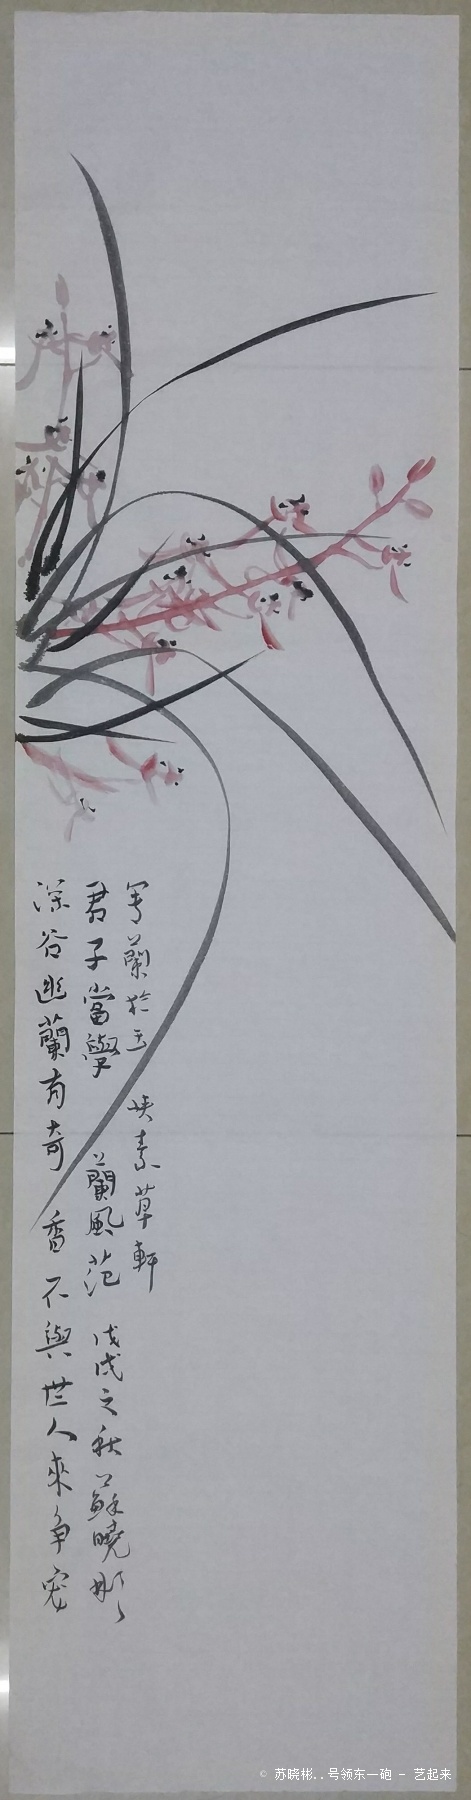 深谷幽蘭有奇香不與世人來争宠
君子當學蘭風范戊戌之秋蘇曉彬
写蘭於素草軒
© 苏晓彬..号领东一砲 - 艺起来